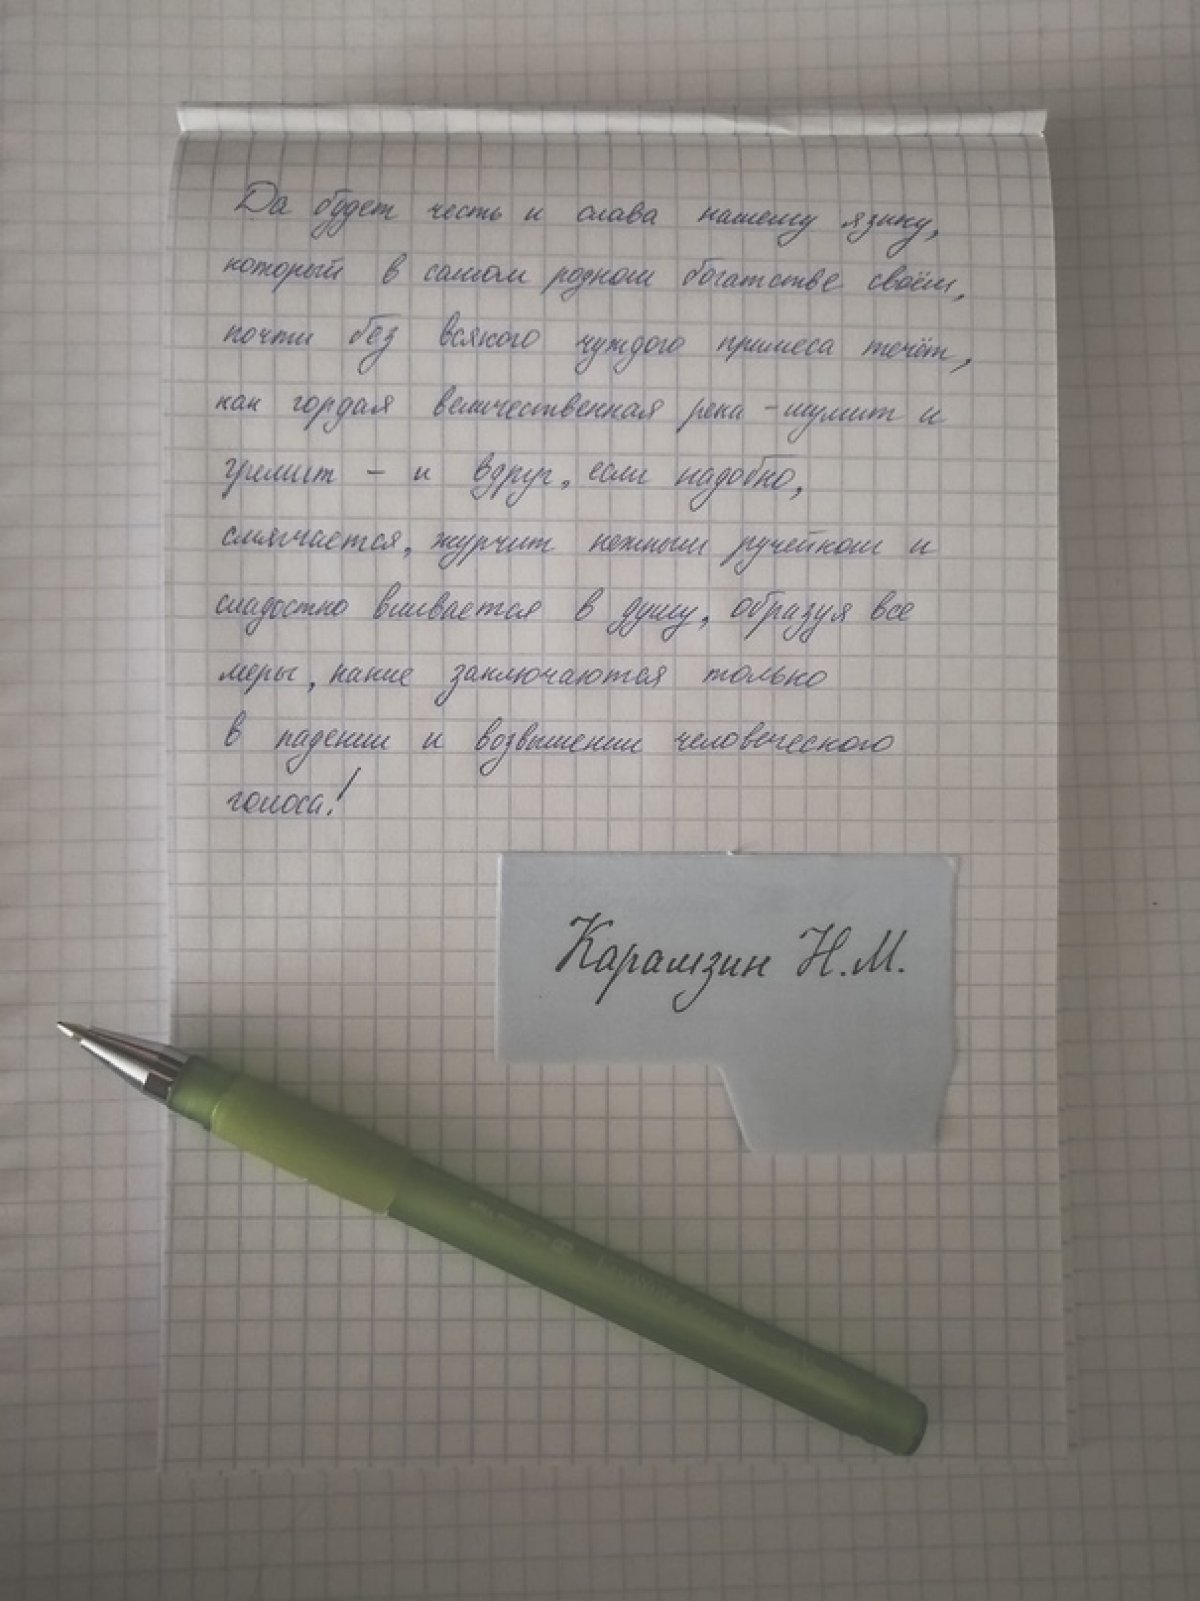 Да будет честь и слава нашему языку,
который в самом родном богатстве своём,
почти без всякого чуждого примеса течёт,
как гордая величественная река - шумит и
гремит - и вдруг, если надобно,
смягчается, журчит нежным ручейком и
сладостно вливается в душу, образуя все
меры, какие заключаются только
в падении и возвышении человеческого
голоса!
Карамзин Н.М.